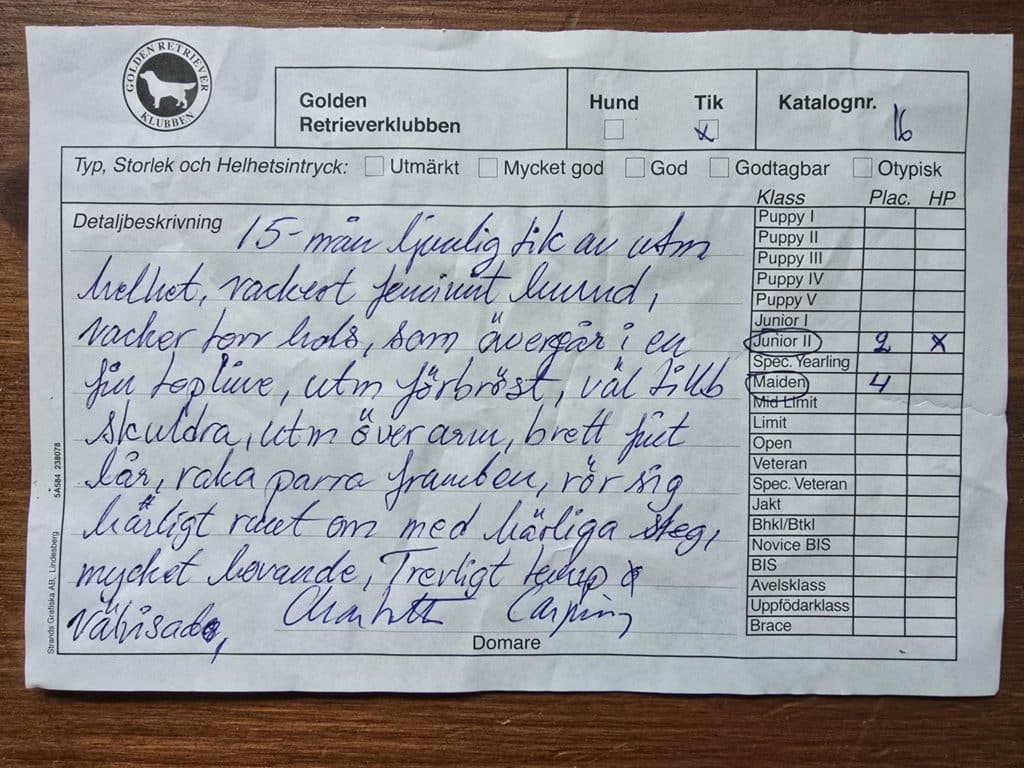 GOLDEN RETRIEVER
KLUBBEN
Golden
Retrieverklubben
Hund
Tik
x
Katalognr.
16
Typ, Storlek och Helhetsintryck: Utmärkt Mycket god God Godtagbar Otypisk
Klass Plac. HP
Detaljbeskrivning
15-mån ljuvlig tik av utm
helhet, vackert feminint huvud,
vacker torr hals, som övergår i en
fin topline, utm förbröst, väl tillb
skuldra, utm överarm, brett fint
lår, raka parra framben, rör sig
härligt runt om med härliga steg,
mycket lovande, Trevligt temp &
välvisad,
Charlotte Carping
Domare
Puppy I
Puppy II
Puppy III
Puppy IV
Puppy V
Junior I
Junior II 2 x
Spec. Yearling
Maiden 4
Mid Limit
Limit
Open
Veteran
Spec. Veteran
Jakt
Bhkl/Btkl
Novice BIS
BIS
Avelsklass
Uppfödarklass
Brace
Strands Grafiska AB, Lindesberg 5A584 238078